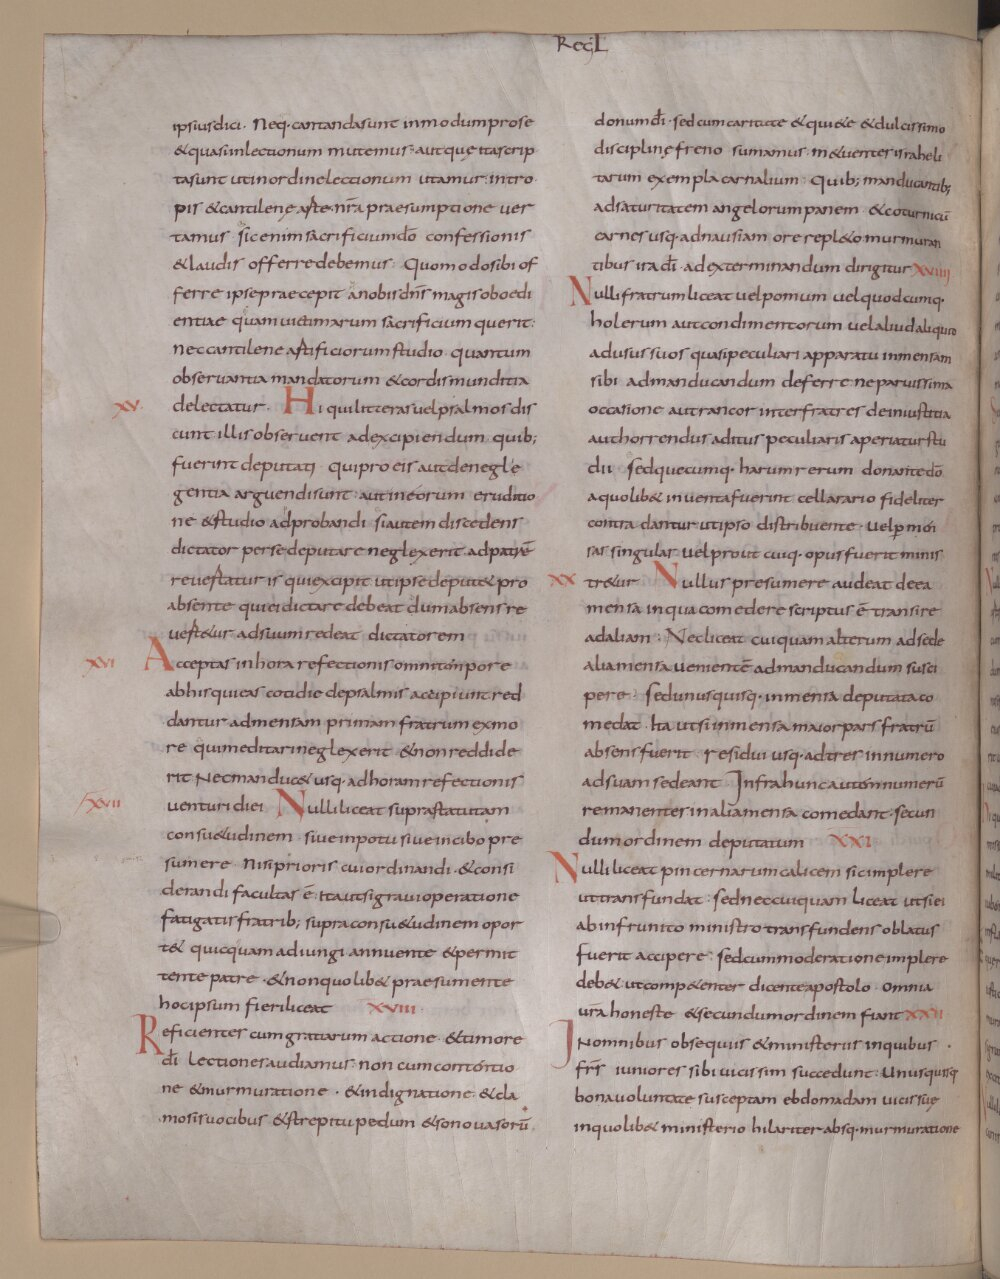 Reg L
ipsius dici. Neq· cantanda sunt in modum prose
& quasi in lectionum mutemus. aut que ita scrip
ta sunt ut in ordine lectionum utamur. in tro
pis & cantilene arte nr̄a praesumptione ver
tamus sic enim sacrificium dō confessionis
& laudis offerre debemus. Quomodo sibi of
ferre ipse praecepit a nobis dn̄s magis oboedi
entiae quam victimarum sacrificium querit.
nec cantilene artificiorum studio quantum
observantia mandatorum & cordis munditia
XV. delectatur. Hi qui litteras vel psalmos dis
cunt illis observent ad excipiendum quib;
fuerint deputati. qui pro eis aut de negle
gentia arguendi sunt. aut in eorum eruditio
ne & studio adprobandi. si autem discedens
dictator per se deputare neglexerit. ad patrē
revertatur is qui excipit ut ipse deput& pro
absente qui ei dictare debeat dum absens re
vert&ur ad suum redeat dictatorem
XVI Acceptas in hora refectionis omni tempore
ab his qui eas cotidie de psalmis accipiunt red
dantur ad mensam primam fratrum ex mo
re qui meditari neglexerit & non reddide
rit Nec manduc& usq· ad horam refectionis
XVII venturi diei Nulli liceat supra statutam
consu&udinem sive in potu sive in cibo pre
sumere. Nisi prioris cui ordinandi & consi
derandi facultas ē. ita ut si gravi operatione
fatigatis fratrib; supra consu&udinem opor
t& quicquam adiungi annuente & permit
tente patre. & non quolib& praesumente
hoc ipsum fieri liceat XVIII.
Reficientes cum gratiarum actione & timore
dī. Lectiones audiamus non cum contentio
ne & murmuratione. & indignatione & cla
mosis vocibus & strepitu pedum & sono vasorū
donum dī. sed cum caritate & qui&e & dulcissimo
discipline freno sumamus. in & venter israheli
tarum exempla carnalium. Quib; manducantib;
ad saturitatem angelorum panem & coturnicū
carnes usq· ad nausiam ore repl&o murmuran
tibus ira dī. ad exterminandum dirigitur XVIIII
Nulli fratrum liceat vel pomum vel quodcumq·
holerum aut condimentorum vel aliud aliquid
ad usus suos quasi peculiari apparatu in mensam
sibi ad manducandum deferre. ne parvissima
occasione aut rancor inter fratres de iniustitia
aut horrendus aditus peculiaris aperiatur stu
dii sed quecumq· harum rerum donante dō
a quolib& inventa fuerint cellarario fideliter
contra dantur ut ipso distribuente. vel p men
sas singulas vel prout cuiq· opus fuerit minis
XX tr&ur Nullus presumere audeat de ea
mensa in qua comedere scriptus ē transire
ad aliam. Nec liceat cuiquam alterum ad sede
alia mensa venientē ad manducandum susci
pere. sed unusquisq· in mensa deputata co
medat. Ita ut si in mensa maior pars fratrū
absens fuerit residui usq· ad tres in numero
ad suam sedeant Infra hunc autem numerū
remanentes in alia mensa comedant. secun
dum ordinem deputatum XXI
Nulli liceat pincernarum calicem sic implere
ut transfundat. sed nec cuiquam liceat ut si ei
ab infrunito ministro transfundens oblatus
fuerit accipere. sed cum moderatione implere
deb& ut comp&enter dicente apostolo. omnia
vr̄a honeste & secundum ordinem fiant XXII
In omnibus obsequiis & ministeriis in quibus
frs̄ iuniores sibi vicissim succedunt. Unusquisq
bona voluntate susceptam ebdomadam vicis suę
in quolib& ministerio hilariter absq· murmuratione